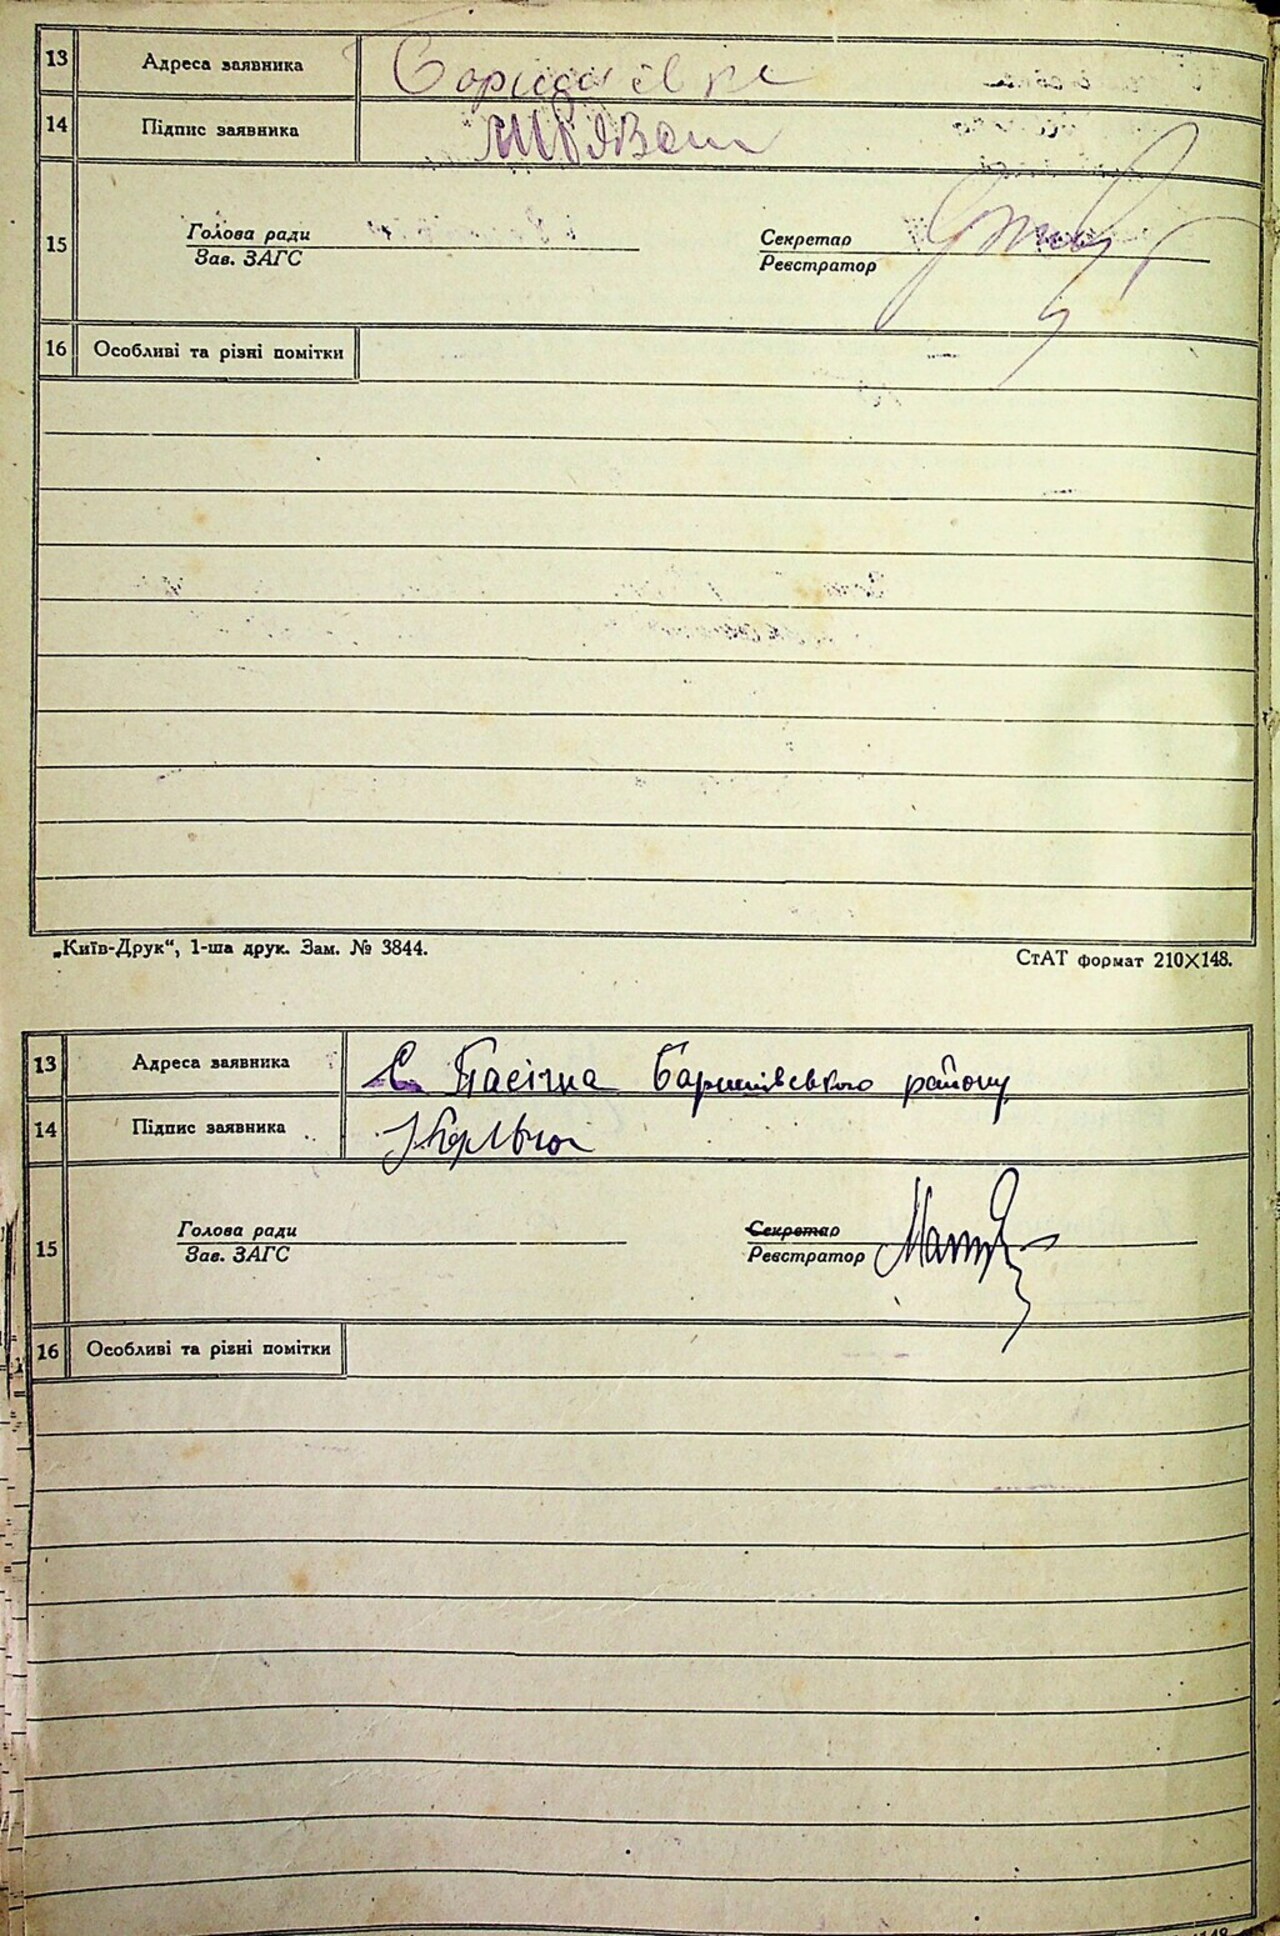 13 Адреса заявника
14 Підпис заявника
15 Голова ради
Зав. ЗАГС
Секретар
Реєстратор
16 Особливі та різні помітки
„Київ-Друк“, 1-ша друк. Зам. № 3844.
СтАТ формат 210×148.
13 Адреса заявника С Пасічна Баришівського району
14 Підпис заявника
15 Голова ради
Зав. ЗАГС
Секретар
Реєстратор
16 Особливі та різні помітки